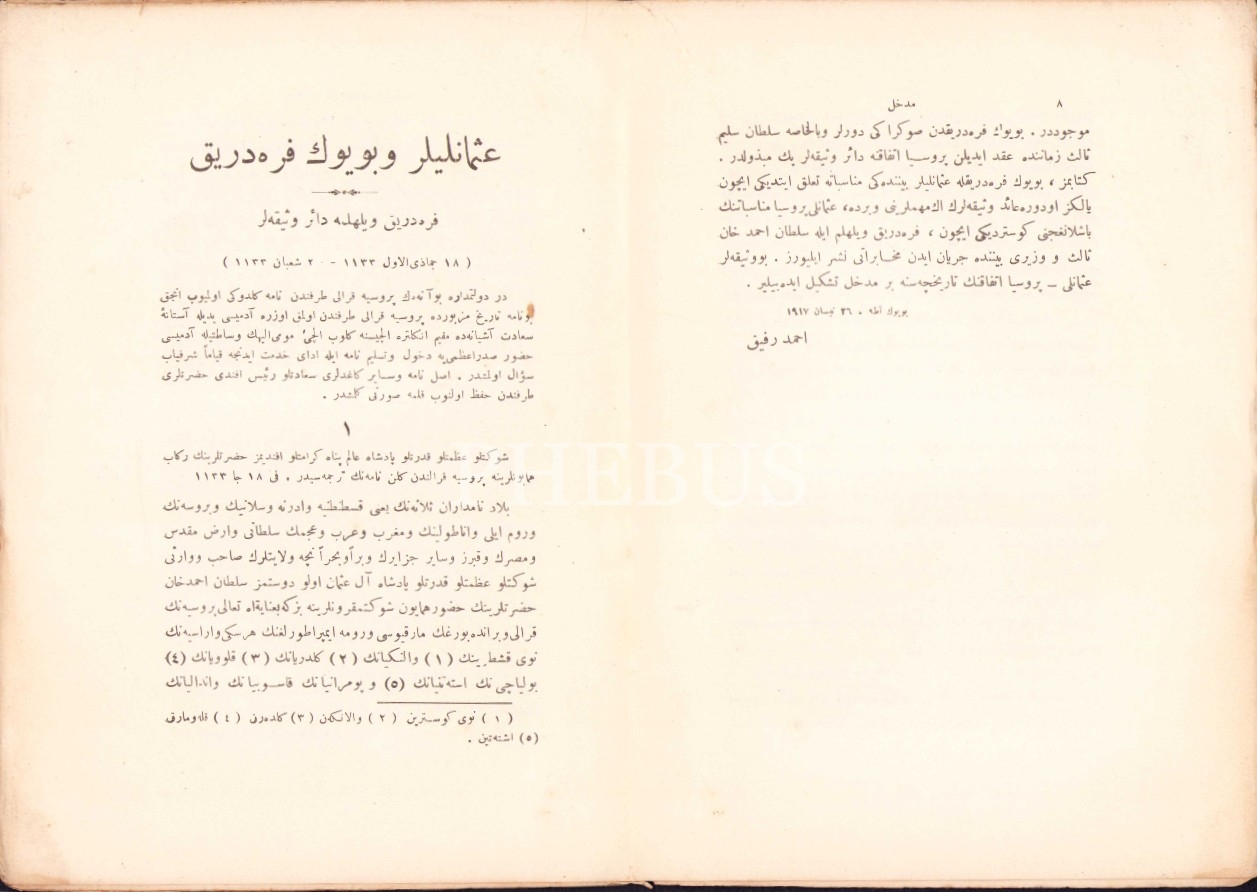 ٨
مدخل
موجوددر . بویوك فره‌دریقدن صوكراكی دورلر وبالخاصه سلطان سلیم
ثالث زماننده عقد ایدیلن پروسیا اتفاقنه دائر وثیقه‌لر پك مبذولدر .
كتابمز ، بویوك فره‌دریقله عثمانلیلر بیننده‌كی مناسباته تعلق ایتدیكی ایچون
یالكز اودوره عائد وثیقه‌لرك اك مهملرینی ویرده، عثمانلی پروسیا مناسباتنك
باشلانغجنی كوستردیكی ایچون ، فره‌دریق ویلهلم ایله سلطان احمد خان
ثالث و وزیری بیننده جریان ایدن مخابراتی نشر ایلیورز . بووثیقه‌لر
عثمانلی ــ پروسیا اتفاقنك تاریخچه‌سنه بر مدخل تشكیل ایده‌بیلیر .
بویوك اطه ، ٢٦ نیسان ١٩١٧
احمد رفیق
عثمانلیلر وبویوك فره‌دریق
فره‌دریق ویلهلمه دائر وثیقه‌لر
( ١٨ جماذی‌الاول ١١٣٣ - ٢٠ شعبان ١١٣٣ )
در دولتمداره بوآنه‌دك پروسیه قرالی طرفندن نامه كلدوكی اولمیوب انجق
بونامه تاریخ مزبورده پروسیه قرالی طرفندن اولمق اوزره آدمیسی یدیله آستانۀ
سعادت آشیانه‌ده مقیم انكلتره الچیسنه كلوب الچیٔ مومی‌الیهك وساطتیله آدمیسی
حضور صدراعظمی‌یه دخول وتسلیم نامه ایله ادای خدمت ایدنجه قیاماً شرفیاب
سؤال اولمشدر . اصل نامه وسایر كاغدلری سعادتلو رئیس افندی حضرتلری
طرفندن حفظ اولنوب قلمه صورتی كلمشدر .
١
شوكتلو عظمتلو قدرتلو پادشاه عالم پناه كرامتلو افندیمز حضرتلرینك ركاب
همایونلرینه پروسیه قرالندن كلن نامه‌نك ترجمه‌سیدر . فی ١٨ جا ١١٣٣
بلاد نامداران ثلاثه‌نك یعنی قسطنطنیه وادرنه وسلانیك وبروسه‌نك
وروم ایلی واناطولینك ومغرب وعرب وعجمك سلطانی وارض مقدس
ومصرك وقبرز وسایر جزایرك وبراًوبحراً نیچه ولایتلرك صاحب ووارثی
شوكتلو عظمتلو قدرتلو پادشاه آل عثمان اولو دوستمز سلطان احمدخان
حضرتلرینك حضورهمایون شوكتمقرونلرینه بزكه‌بعنایةاه تعالی پروسیه‌نك
قرالی وبرانده‌بورغك مارقیوسی ورومه ایمپراطورلغنك هرسكی واراسیه‌نك
نوی قشطرینك (١) والنكیانك (٢) كلدریانك (٣) قلوویانك (٤)
بولیاچی‌نك استه‌تنیانك (٥) و پومرانیانك قاسوبیانك واندالیانك
(١) نوی كوسترین (٢) والانكن (٣) كلده‌رن (٤) قله‌ومارق
(٥) اشته‌تین .
PHEBUS